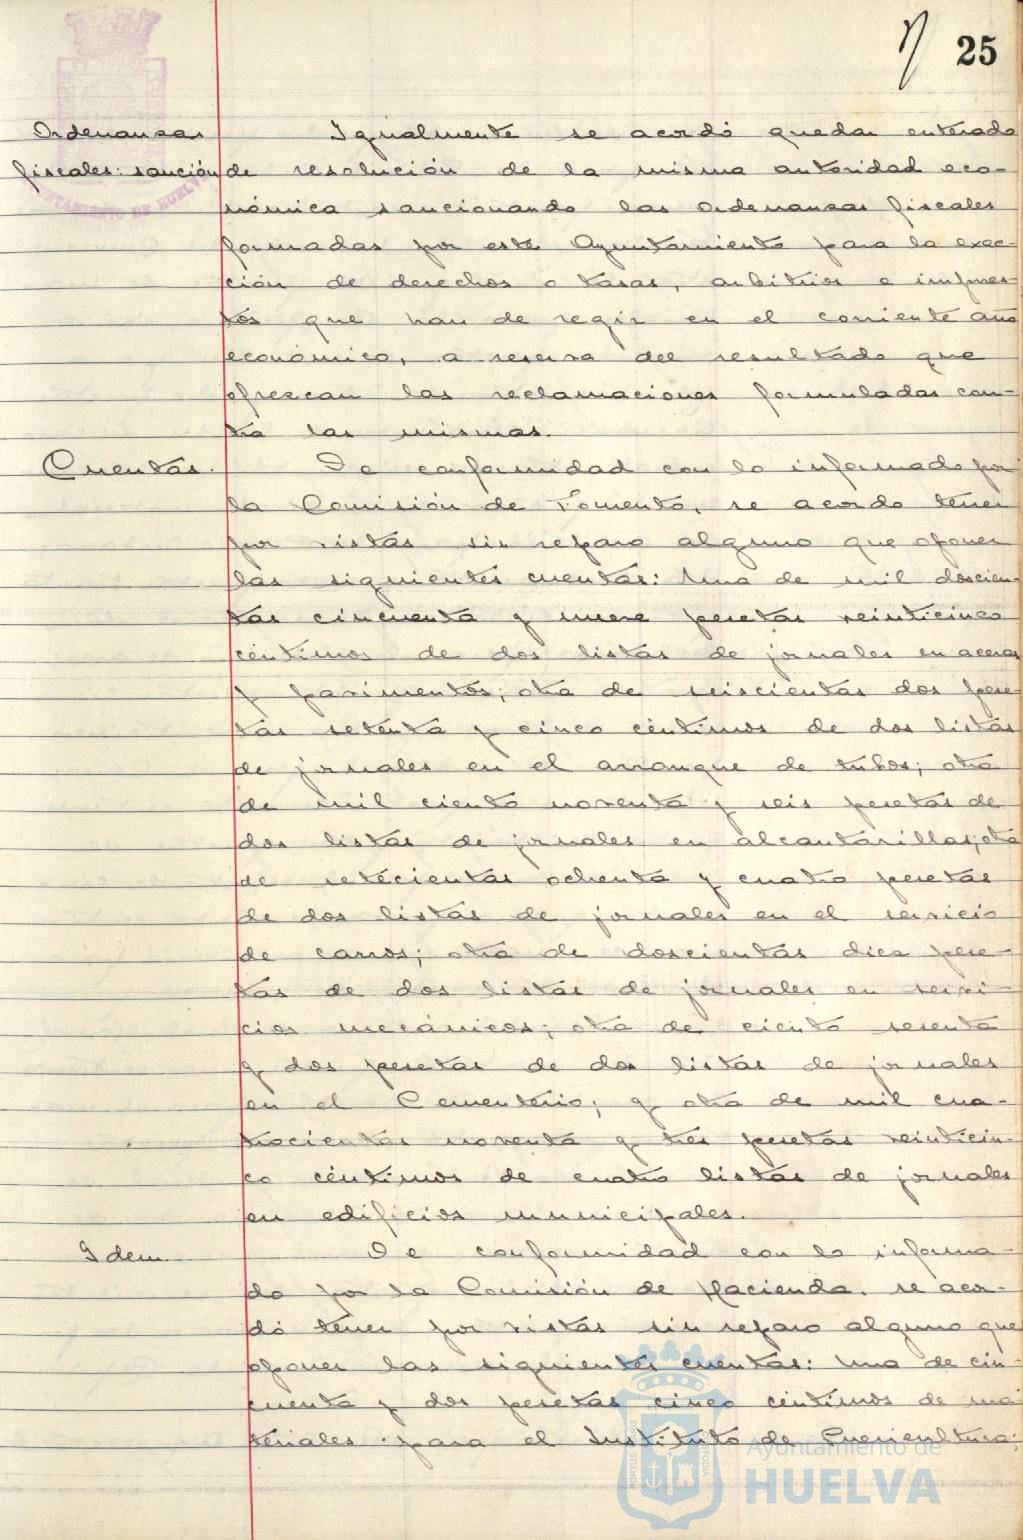 25
Ordenanzas
fiscales: sanción
Igualmente se acordó quedar enterado
de resolución de la misma autoridad eco-
nómica sancionando las ordenanzas fiscales
formadas por este Ayuntamiento para la exac-
ción de derechos o tasas, arbitrios e impues-
tos que han de regir en el corriente año
económico, a reserva del resultado que
ofrezcan las reclamaciones formuladas con-
tra las mismas.
Cuentas.
De conformidad con lo informado por
la Comisión de Fomento, se acordó tener
por vistas sin reparo alguno que oponer
las siguientes cuentas: Una de mil doscien-
tas cincuenta y nueve pesetas veinticinco
céntimos de dos listas de jornales en aceras
y pavimentos; otra de seiscientas dos pese
tas setenta y cinco céntimos de dos listas
de jornales en el arranque de tubos; otra
de mil ciento noventa y seis pesetas de
dos listas de jornales en alcantarillas; otra
de setecientas ochenta y cuatro pesetas
de dos listas de jornales en el servicio
de carros; otra de doscientas diez pese-
tas de dos listas de jornales en servi-
cios mecánicos; otra de ciento sesenta
y dos pesetas de dos listas de jornales
en el Cementerio; y otra de mil cua-
trocientas noventa y tres pesetas veinticin-
co céntimos de cuatro listas de jornales
en edificios municipales.
Idem
De conformidad con lo informa-
do por la Comisión de Hacienda, se acor-
dó tener por vistas sin reparo alguno que
oponer las siguientes cuentas: Una de cin
cuenta y dos pesetas cinco céntimos de ma
teriales para el Instituto de Puericultura;
Ayuntamiento de
HUELVA